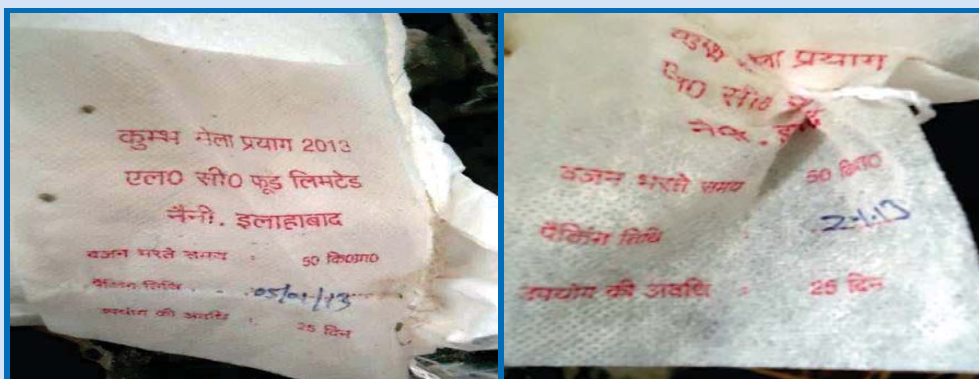 कुम्भ मेला प्रयाग 2013
एल0 सी0 फूड लिमटेड
नैनी. इलाहाबाद
वजन भरते समय : 50 कि0ग्रा0
पैकिंग तिथि : 05/01/13
उपयोग की अवधि : 25 दिन
कुम्भ मेला प्रयाग
एल0 सी0
वजन भरते समय 50 कि0ग्रा0
पैकिंग तिथि : 2.1.13
उपयोग की अवधि : 25 दिन